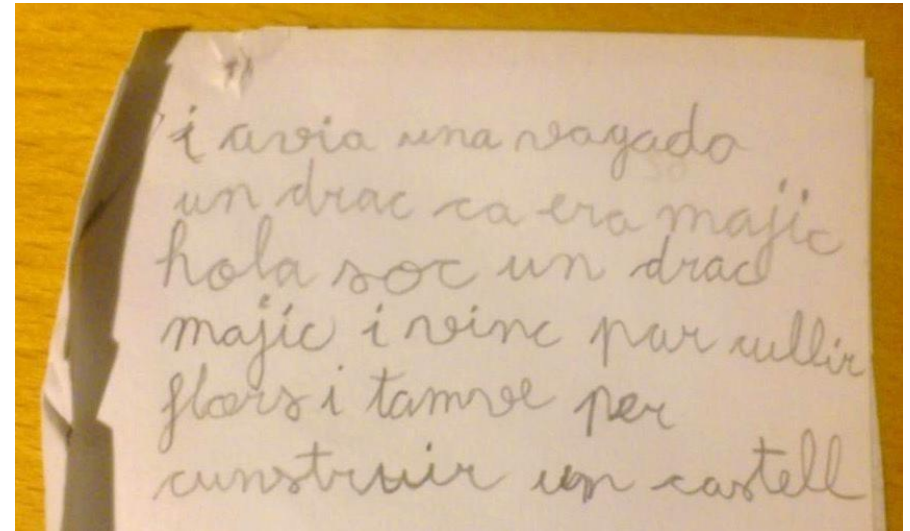 i avia una vagado
un drac ca era majic
hola soc un drac
majic i vinc par cullir
flors i tamve per
cunstruir un castell